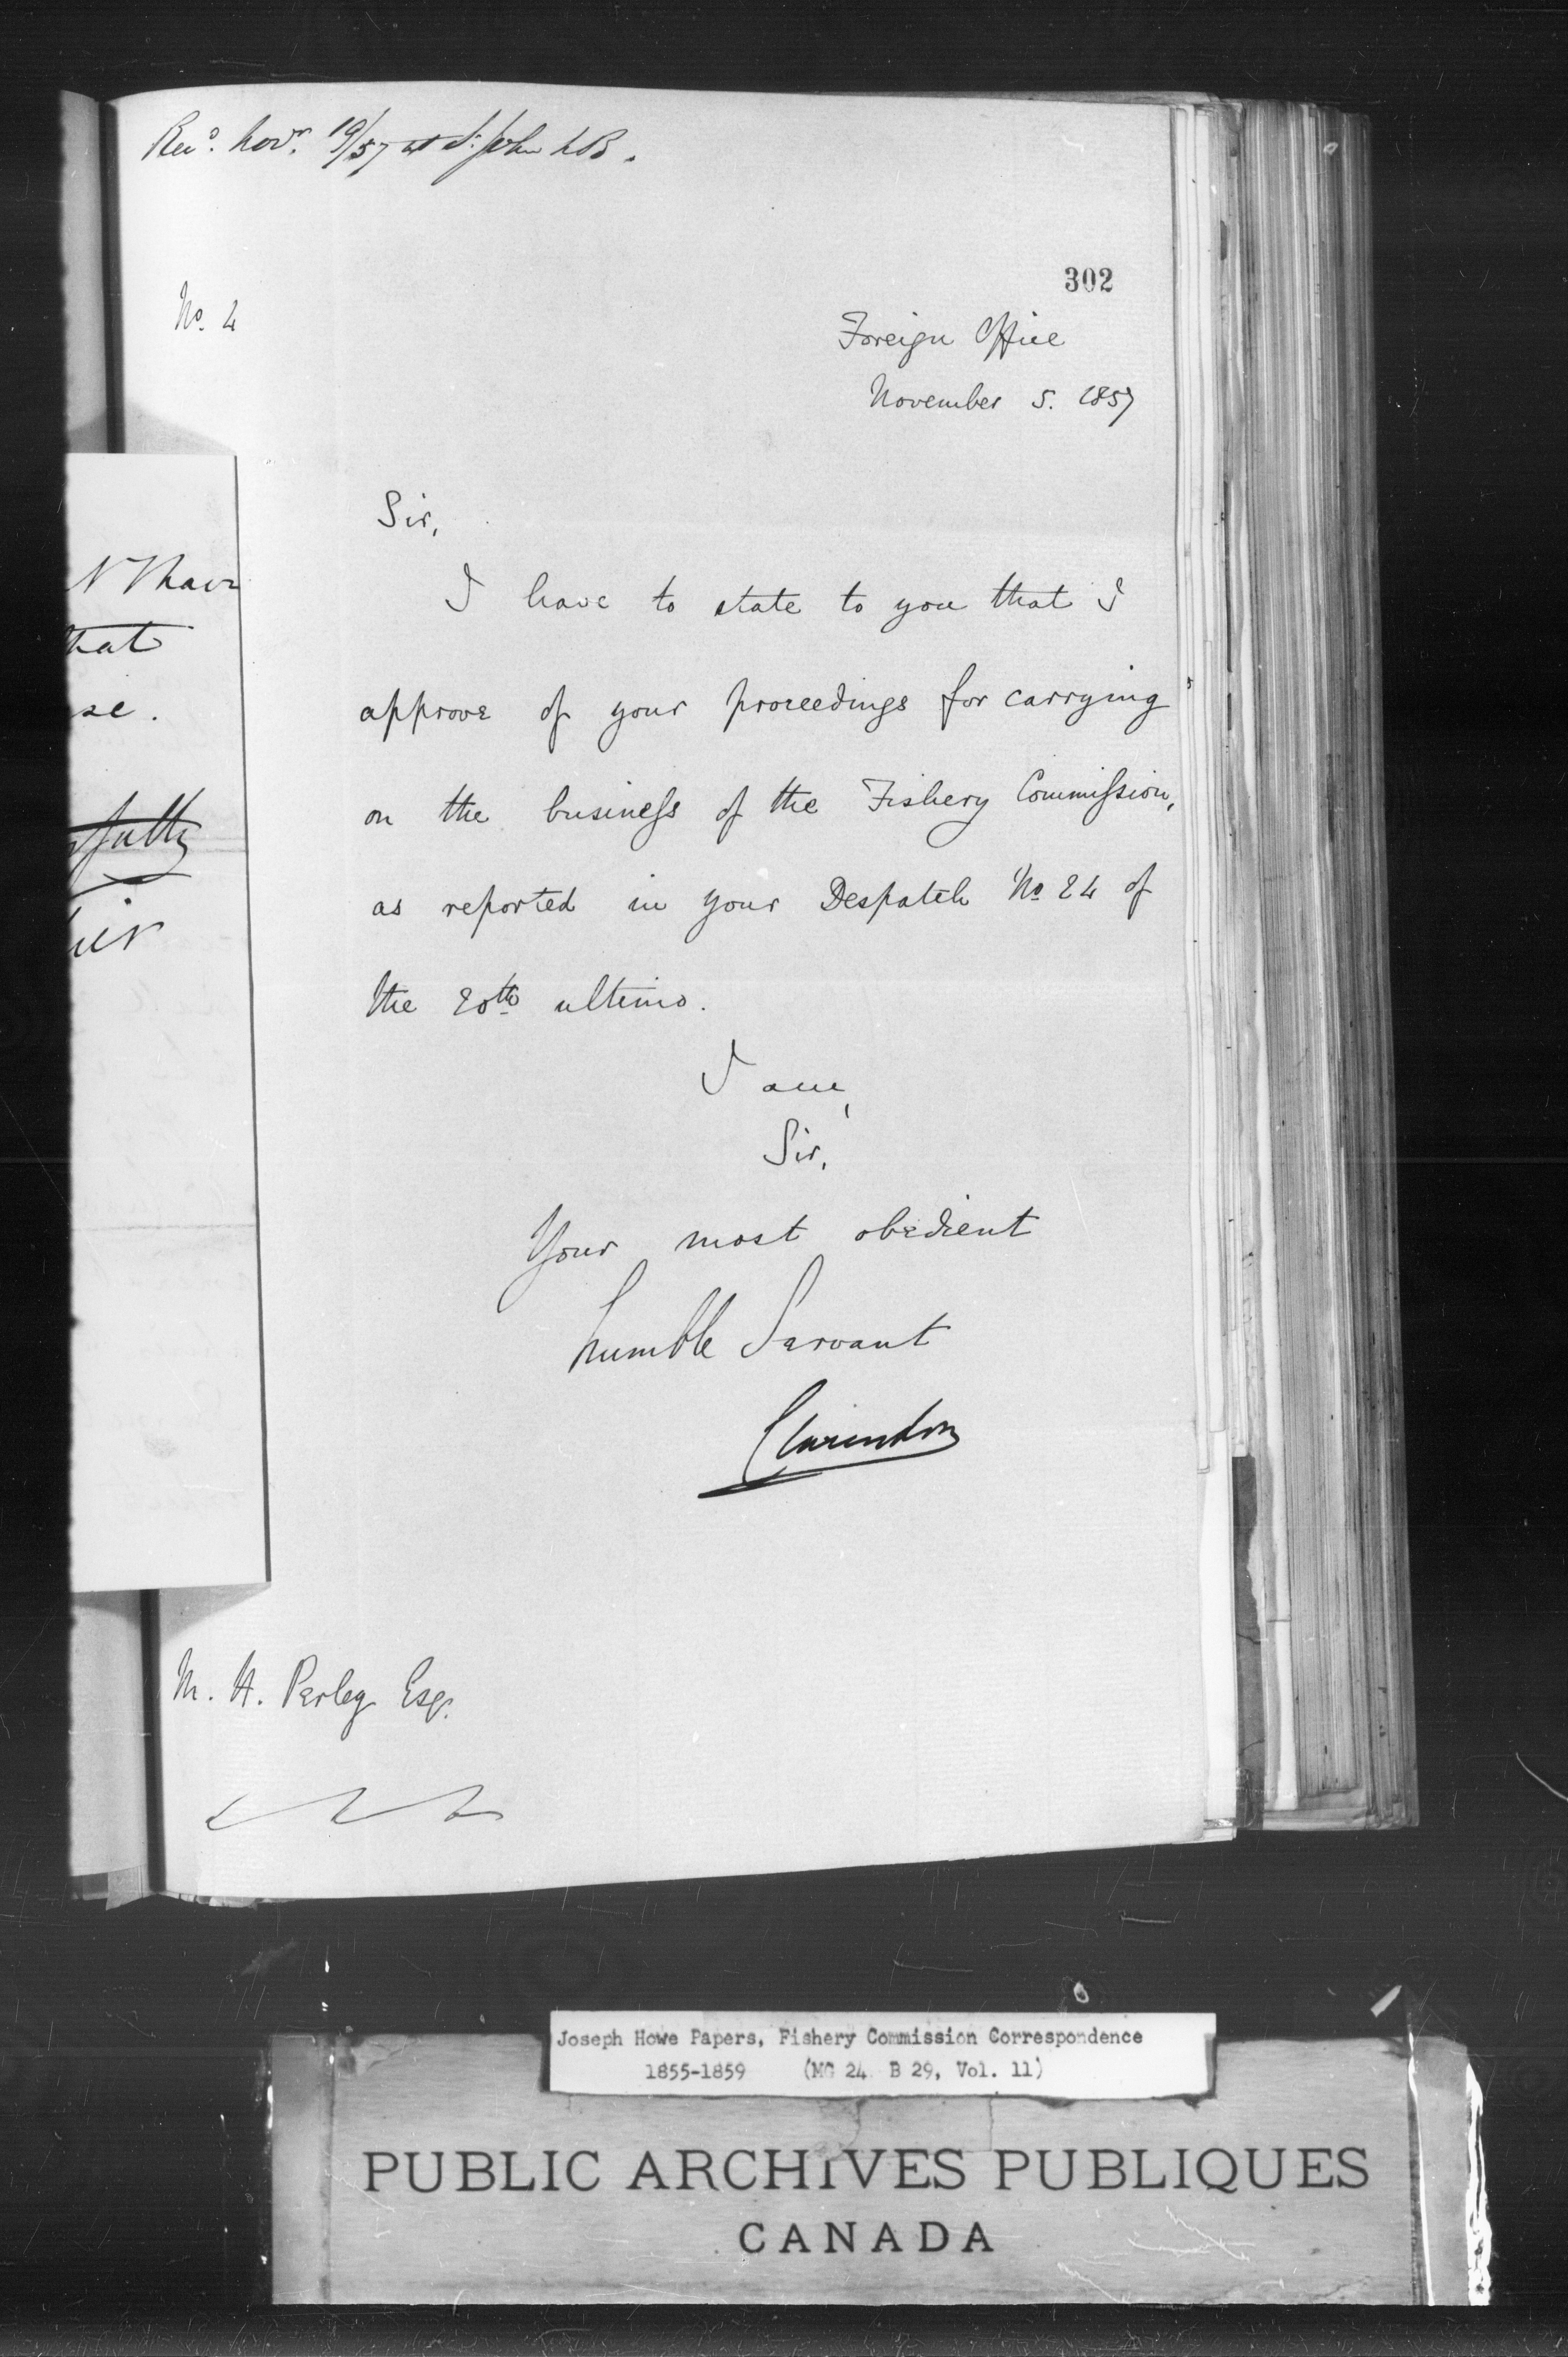 Recd. Novr. 19/57 at St. John NB.
302
No. 4
Foreign Office
November 5. 1857
Sir,
I have to state to you that I
approve of your proceedings for carrying
on the business of the Fishery Commission,
as reported in your Despatch No 24 of
the 20th ultimo.
I am,
Sir,
Your most obedient
humble Servant
Clarendon
M. H. Perley Esq.
hat
se.
Joseph Howe Papers, Fishery Commission Correspondence
1855-1859 (MG 24 B 29, Vol. 11)
PUBLIC ARCHIVES PUBLIQUES
CANADA